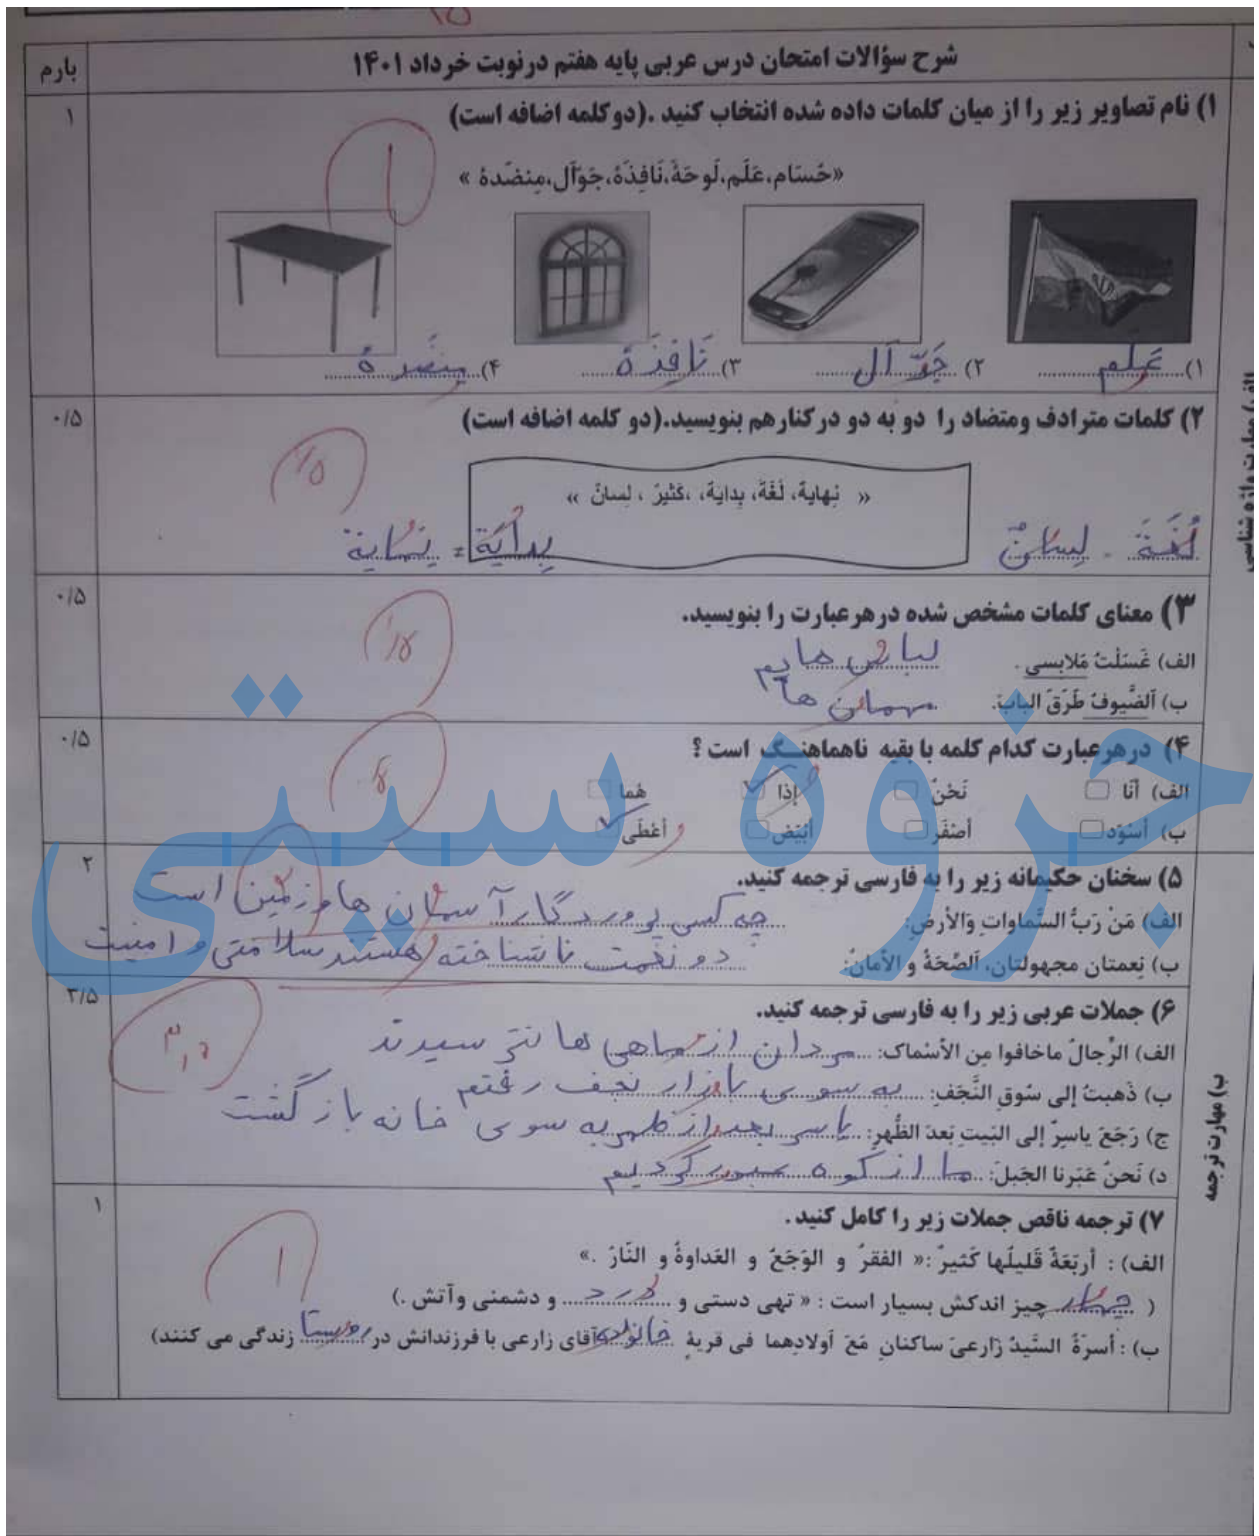 ۱۵
بارم
شرح سؤالات امتحان درس عربی پایه هفتم درنوبت خرداد ۱۴۰۱
۱
۱) نام تصاویر زیر را از میان کلمات داده شده انتخاب کنید .(دوکلمه اضافه است)
«حُسَام،عَلَم،لَوحَةَ،نَافِذَةُ،جَوّآل،مِنضَدةُ »
۱
۱) عَلَم ۲) جَوّ آل ۳) نَافِذَة ۴) مِنضَدة
الف) مهارت واژه شناسی
۰/۵
۲) کلمات مترادف ومتضاد را دو به دو درکنارهم بنویسید.(دو کلمه اضافه است)
« نِهایة، لُغَةُ، بِدایَة، ،کَثیرُ ، لِسانُ »
لُغَةَ - لِسانٌ بِدایَة ≠ نِهایة
۰/۵
۳) معنای کلمات مشخص شده درهرعبارت را بنویسید.
الف) غَسَلْتُ مَلابسی . لباس هایم
ب) اَلضُّیوفُ طَرَقَ البابَ. مهمان ها
۰/۵
۴) درهرعبارت کدام کلمه با بقیه ناهماهنگ است ؟
الف) أنَا نَحْنُ إذا هُما
ب) أسْوَد أصْفَر أبْیَض أعْطَی
۲
۵) سخنان حکیمانه زیر را به فارسی ترجمه کنید.
الف) مَنْ رَبُّ السَّماواتِ وَالأرضِ: چه کسی پروردگار آسمان ها و زمین است
ب) نِعمتان مجهولتان، اَلصِّحَةُ و الأمانُ: دو نعمت ناشناخته هستند سلامتی و امنیت
۳/۵
۶) جملات عربی زیر را به فارسی ترجمه کنید.
الف) الرِّجالُ ماخافوا مِن الأسْماک: مردان از ماهی ها نترسیدند
ب) ذَهبتُ إلی سُوقِ النَّجَفِ: به سوی بازار نجف رفتم
ج) رَجَعَ یاسِرٌ إلی البَیتِ بَعدَ الظُّهرِ: یاسر بعد از ظهر به سوی خانه بازگشت
د) نَحنُ عَبَرنا الجَبلَ: ما از کوه عبور کردیم
ب) مهارت ترجمه
۱
۷) ترجمه ناقص جملات زیر را کامل کنید.
الف) : أربَعَةٌ قَلیلُها کَثیرٌ :« الفقرُ و الوَجَعُ و العَداوةُ و النّارُ .»
( چهار چیز اندکش بسیار است : « تهی دستی و درد و دشمنی وآتش .)
۱
ب) : أسرَةُ السَّیدُ زارعیَ ساکنانِ مَعَ أولادِهما فی قریةِ خانواده آقای زارعی با فرزندانش در روستا زندگی می کنند)
جزوه سیتی